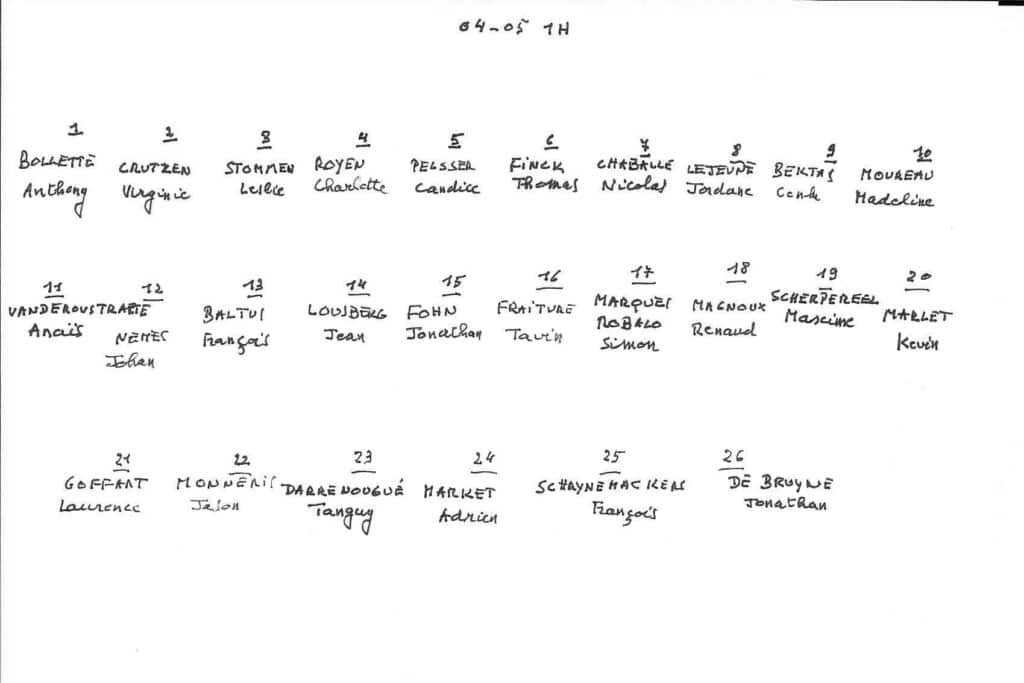 04-05 1H
1 2 3 4 5 6 7 8 9 10
BOLLETTE CRUTZEN STOMMEN ROYEN PELSSER FINCK CHABALLE LEJEUNE BEKTAS MOUREAU
Anthony Virginie Leslie Charlotte Candice Thomas Nicolas Jordane Cenk Madeline
11 12 13 14 15 16 17 18 19 20
VANDEROUSTRAETE NEMES BALTUS LOUSBERG FOHN FRAITURE MARQUES MAGNOUX SCHERPEREEL MARLET
Anaïs Johan François Jean Jonathan ROBALO Renaud Maxime Kevin
Simon
21 22 23 24 25 26
GOFFART MONNERIS DARRENOUGUÉ MARKET SCHRYNEMACKERS DE BRUYNE
Laurence Jason Tanguy Adrien François Jonathan